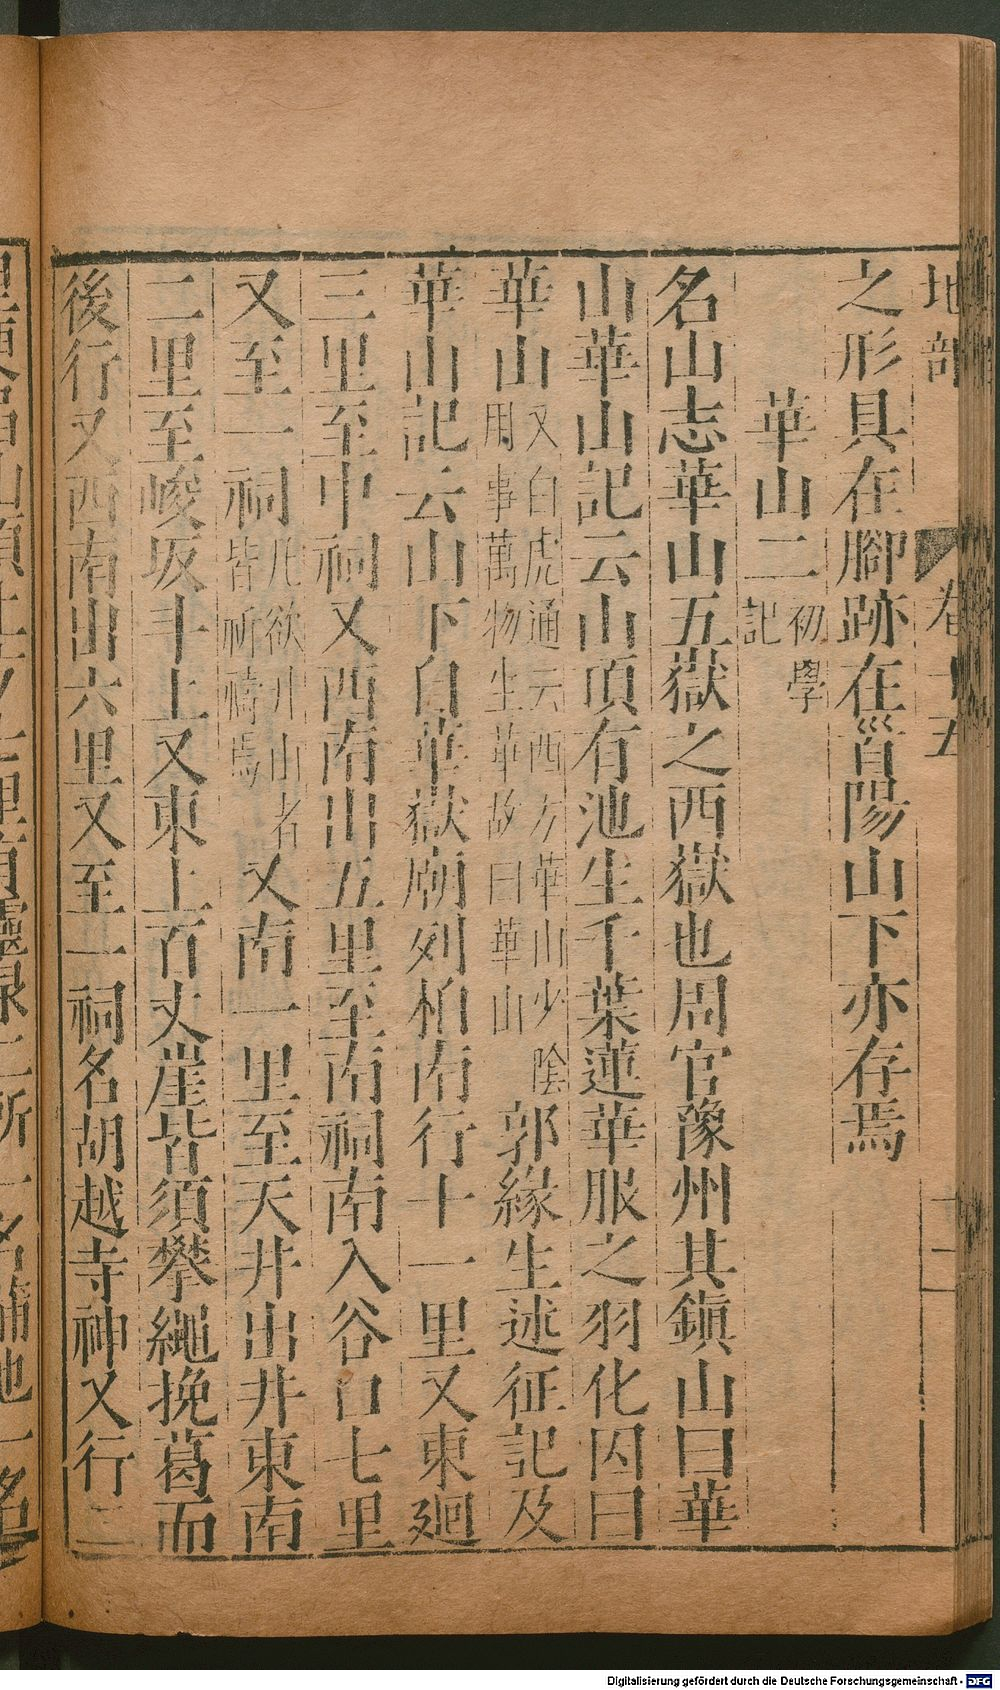 地部 卷十五 十一
之形具在腳跡在𩠐陽山下亦存焉
華山二初學記
名山志華山五嶽之西嶽也周官豫州其鎭山曰華
山華山記云山頂有池生千葉蓮華服之羽化因曰
華山又白虎通云西方華山少陰用事萬物生華故曰華山郭緣生述征記及
華山記云山下自華嶽廟列柏南行十一里又東廻
三里至中祠又西南出五里至南祠南入谷口七里
又至一祠凡欲升山者皆祈禱焉又南一里至天井出井東南
二里至峻坂斗上又東上百丈崖皆須攀繩挽葛而
後行又西南出六里又至一祠名胡越寺神又行二
Digitalisierung gefördert durch die Deutsche Forschungsgemeinschaft - DFG